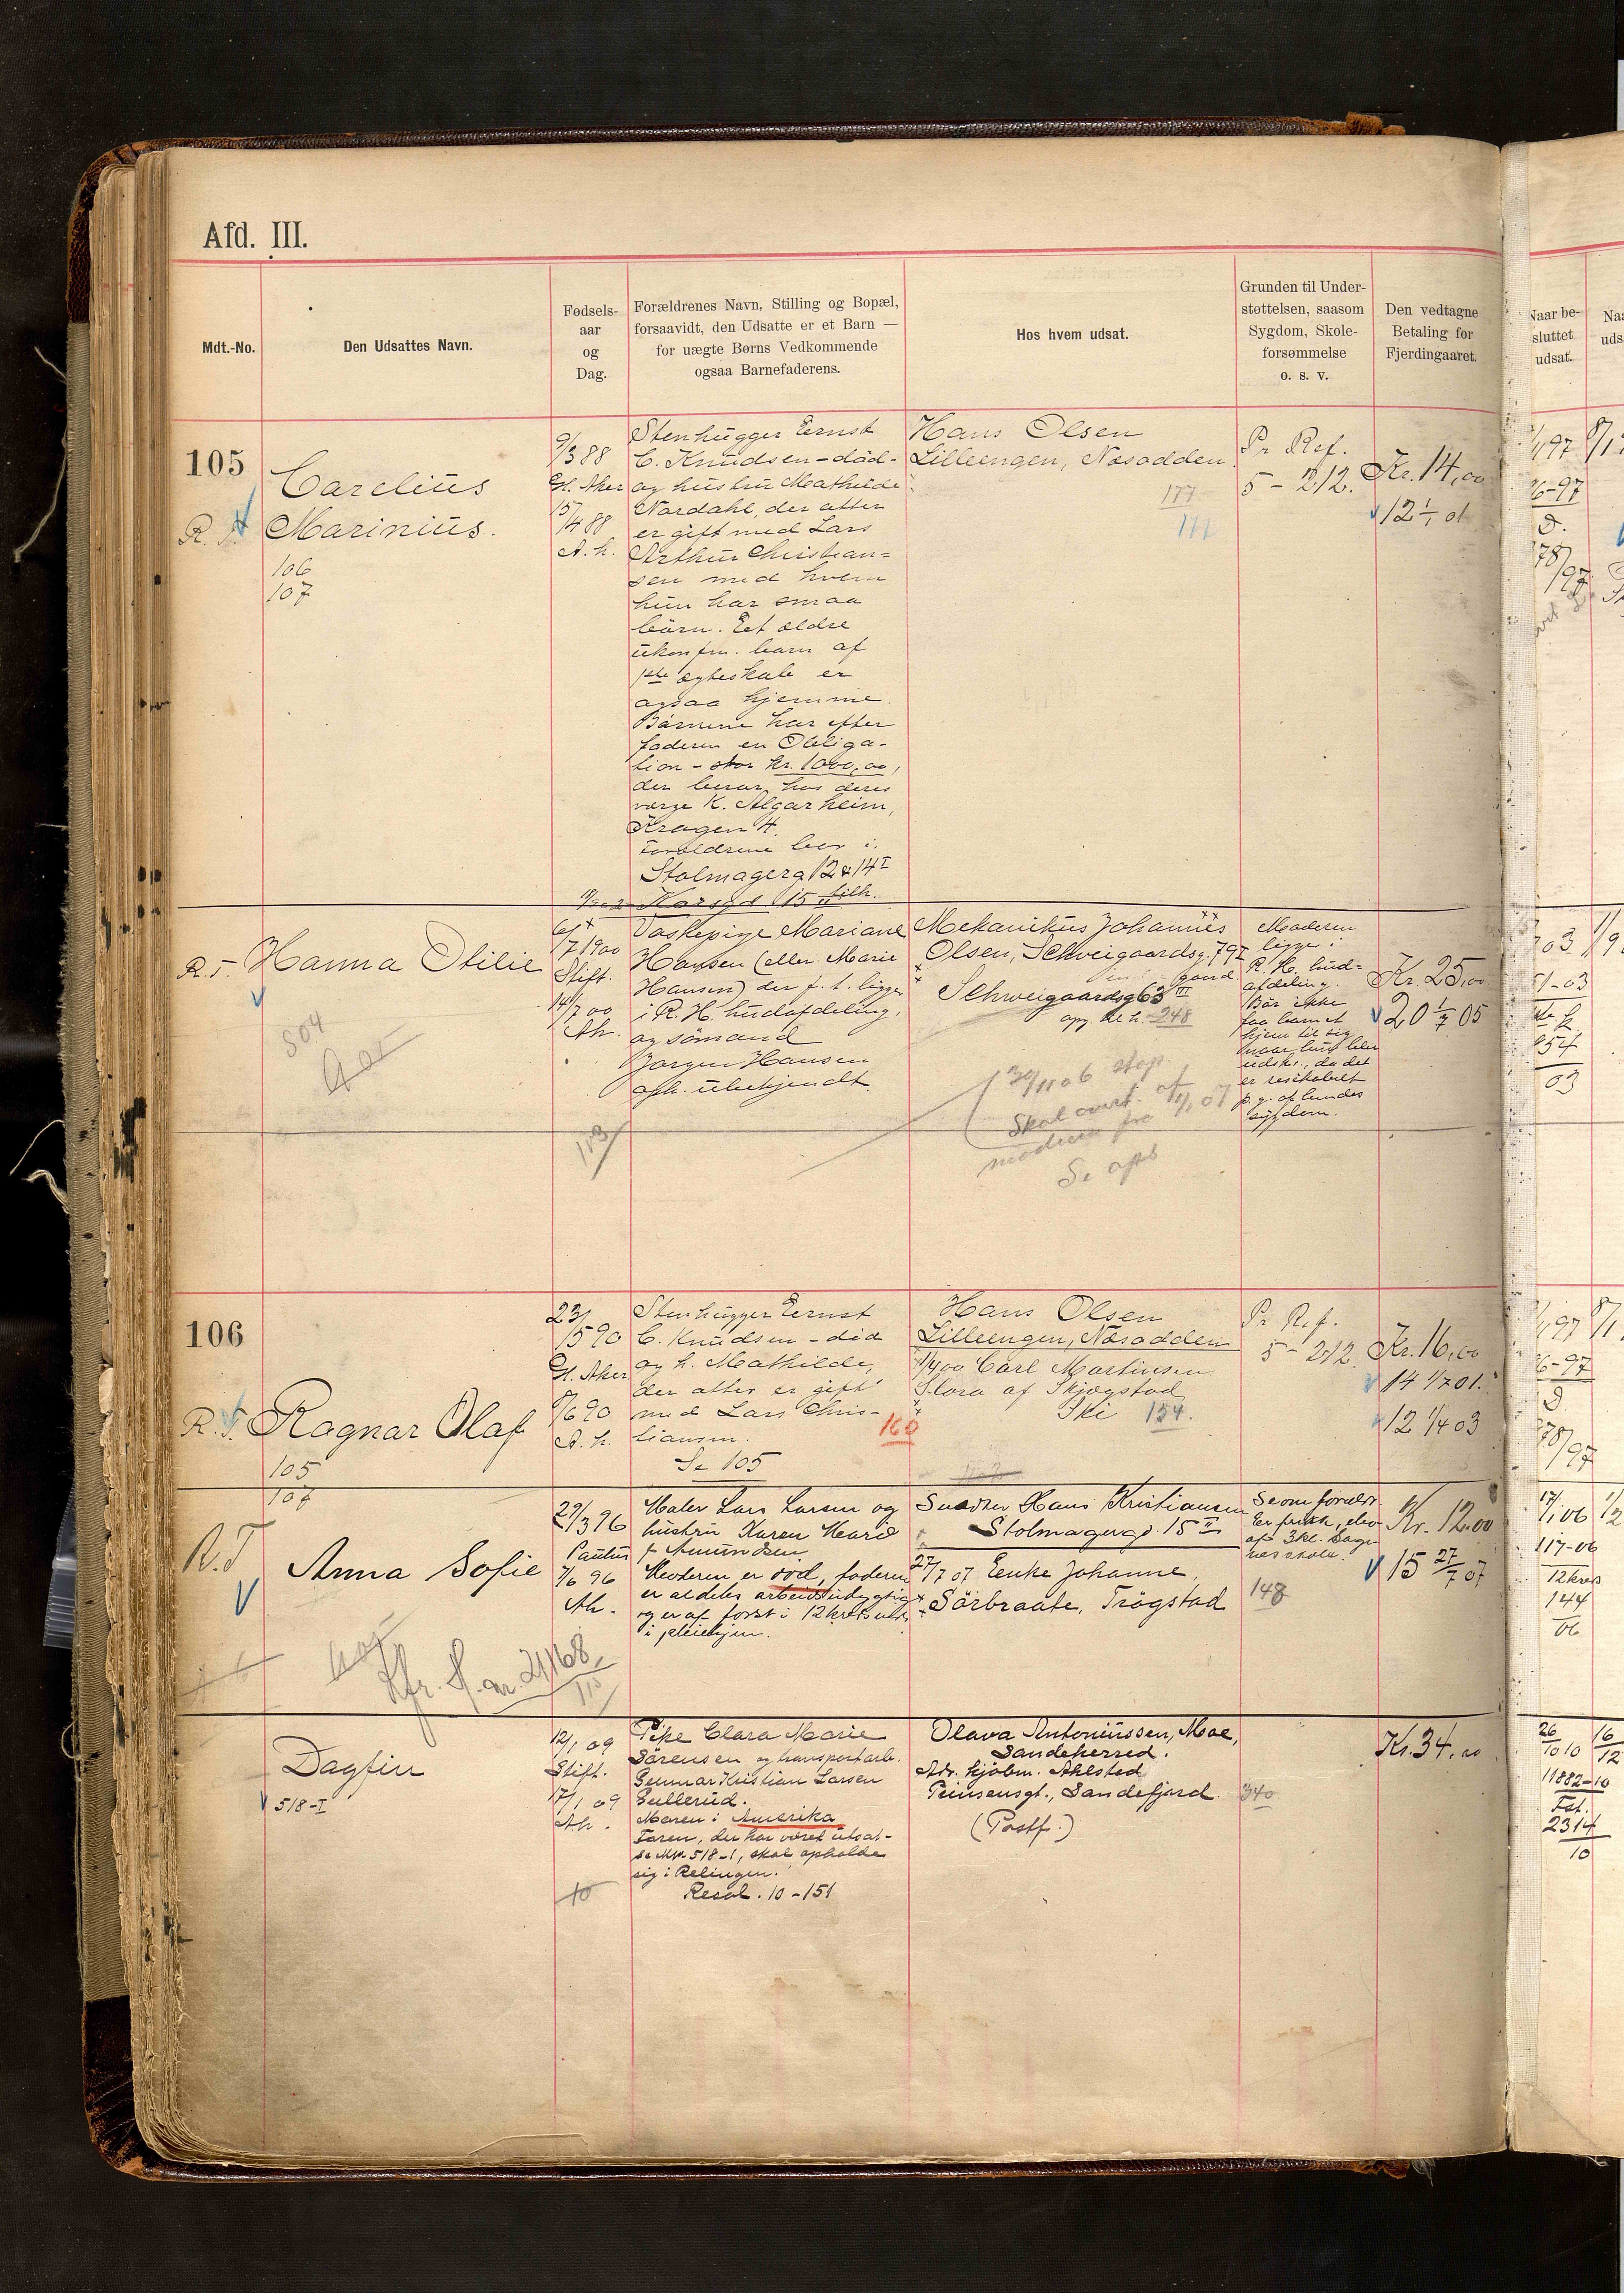 Afd. III.
Mdt.-No.
Den Udsattes Navn.
Fødsels-
aar
og
Dag.
Forældrenes Navn, Stilling og Bopæl,
forsaavidt, den Udsatte er et Barn —
for uægte Børns Vedkommende
ogsaa Barnefaderens.
Hos hvem udsat.
Grunden til Under-
støttelsen, saasom
Sygdom, Skole-
forsømmelse
o. s. v.
Den vedtagne
Betaling for
Fjerdingaaret.
Naar be-
sluttet
udsat.
105
R. T.
Carelius
Marinius.
106
107
9/3 88
Gl. Aker
15/4 88
A. h.
Stenhugger Ernst
C. Knudsen - död -
og hustru Mathilde
Nordahl, der atter
er gift med Lars
Arthur Christian-
sen med hvem
hun har smaa
börn. Et ældre
ukonfm. barn af
1ste ægteskab er
ogsaa hjemme.
Börnene har efter
faderen en Obliga-
tion - stor Kr. 1000,00,
der beror hos deres
værge K. Algarheim,
Kragen 4.
Forældrene bor i
Stolmagerg 12 & 14 I
Korsgd 15 II tilh.
Hans Olsen
Lilleengen, Næsodden.
177
111
Pr. Ref.
5 - 212.
Kr. 14,00
12 1/1 01
R. T.
Hanna Otilie
504
6/7 1900
Stift.
14/7 00
Ah.
Vaskepige Mariane
Hansen (eller Marie
Hansen) der f. t. ligger
i R. H. hudafdeling,
og sömand
Jörgen Hansen
oph. ubekjendt
113
Mekanikus Johannes
Olsen, Schweigaardsg. 79 I
gaard
Schweigaardsg 63 III
opg. bl. h. 248
30/11 06 stop.
Skal
moderen fra 1/1 07
Se
Moderen
ligger i
R. H. hud-
afdeling.
Bör ikke
faa barnet
hjem til sig
naar hun blir
udskr., da det
er resikabelt
p. g. af hendes
sygdom.
Kr. 25,00
20 1/7 05
106
R. T.
Ragnar Olaf
105
107
23/5 90
Gl. Aker
8/6 90
A. h.
Stenhugger Ernst
C. Knudsen - död
og h. Mathilde,
der atter er gift
med Lars Chris-
tiansen.
Se 105
160
Hans Olsen
Lilleengen, Næsodden
1/4 00 Carl Martinsen
Flora af Skjægstad
Ski 154.
Pr. Ref.
5 - 212.
Kr. 16,00
14 1/7 01.
12 1/4 03
R. T
Anna Sofie
29/3 96
Paulus
7/6 96
Ah.
Maler Lars Larsen og
hustru Karen Marie
f. Amundsen.
Moderen er död, faderen
er aldeles arbeidsudygtig
og er af forst i 12 kreds uds.
i pleiehjem.
Snedker Hans Kristiansen
Stolmagergd. 15 II
27/7 07 Enke Johanne
Sörbraate, Trögstad
148
Se om foreldr.
Er frisk, elev
af 3 kl. Sage-
nes skole.
Kr. 12.00
15 27/7 07
Dagfin
518-I
12/1 09
Stift.
17/1 09
Ah.
10
Pike Clara Marie
Sörensen og transportarb.
Gunnar Kristian Larsen
Gullerud.
Moren i Amerika
Faren, der har været utsat -
se Mk. 518-1, skal opholde
sig i Relingen.
Resol. 10-151
Olava Antoniussen, Moe,
Sandeherred.
Adr. kjöbm. Ahlsted
Prinsensgt., Sandefjord.
(Postf.)
340
Kr. 34,00